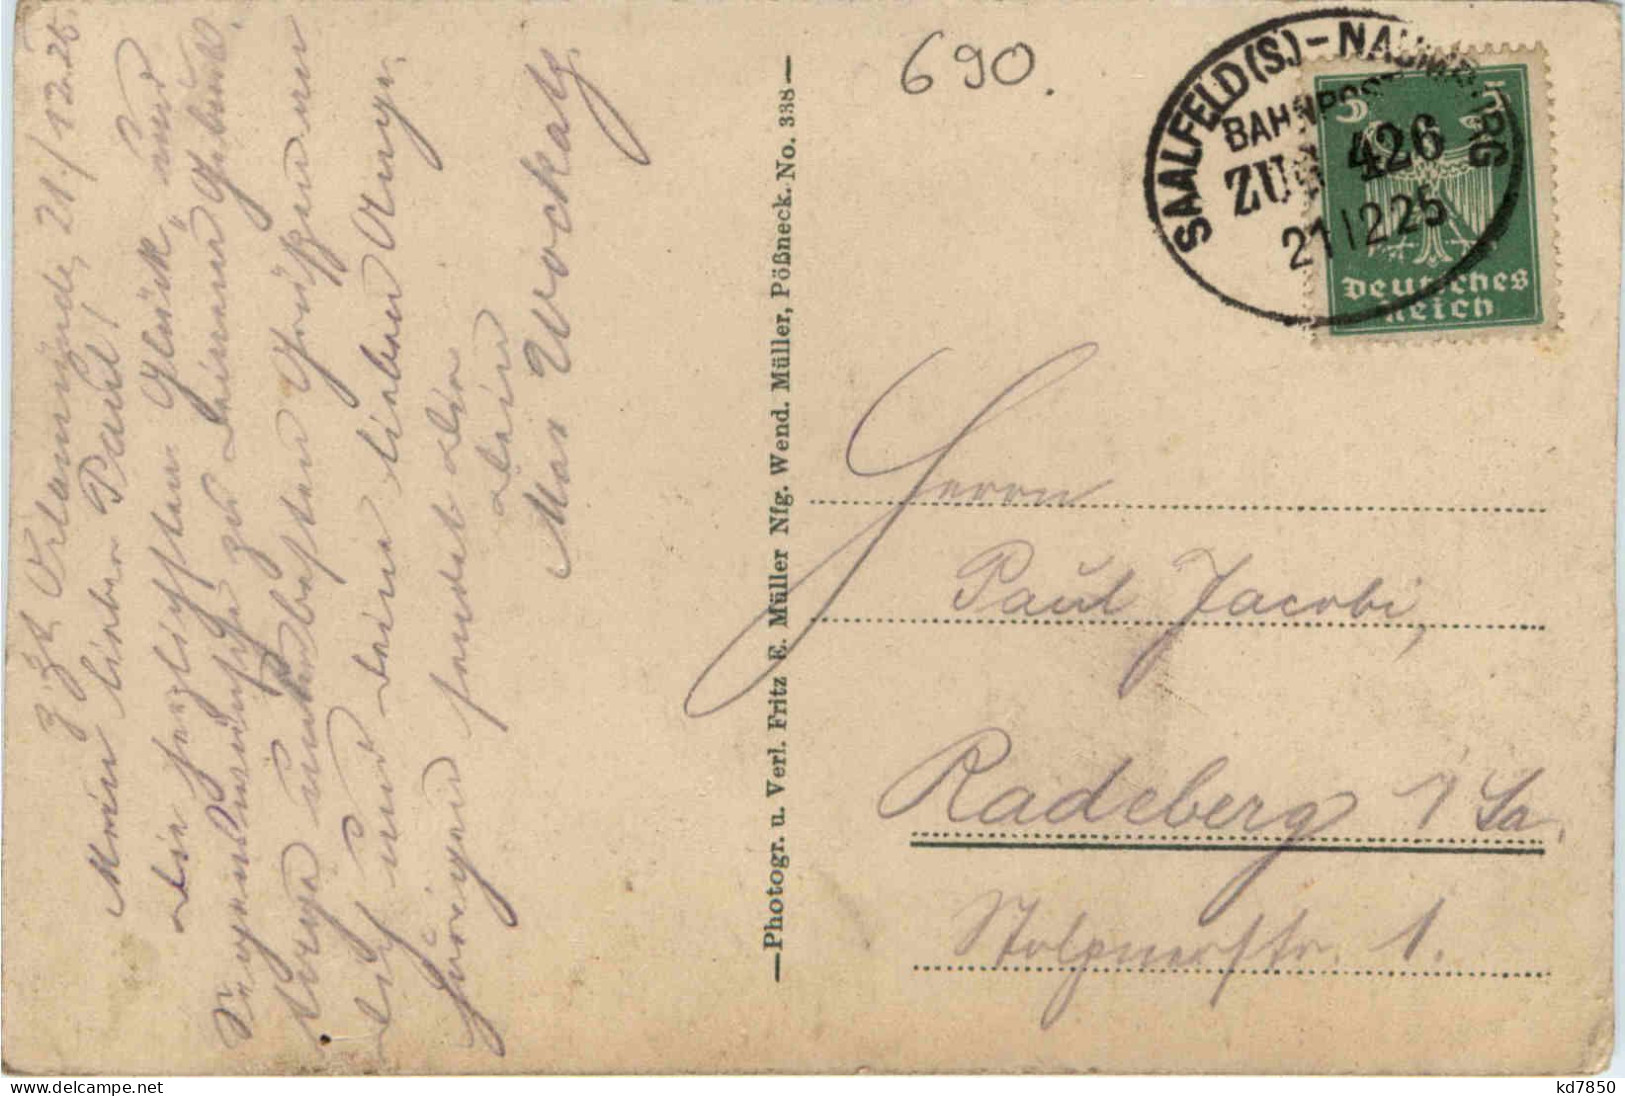 z. Zt. Orlamünde, 21./12.25.
Mein lieber Paul!
Die herzlichsten Glück- und
Segenswünsche zu deinem Geburts-
tage und den besten Grüßen an
Dich und deine lieben Angeh-
örigen sendet dir
dein
Max Wockatz.
—Photogr. u. Verl. Fritz E. Müller Nfg. Wend. Müller, Pößneck. No. 338—
690.
SAALFELD(S.)-NAUMBURG
BAHNPOST
ZUG 426
21 12 25
5 5
Deutsches
Reich
Herrn
Paul Jacobi,
Radeberg i/Sa.
Stolpnerstr. 1.
kd7850